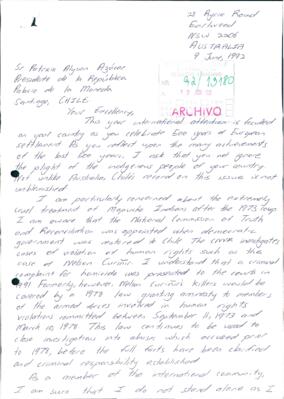 Earlwood
NSW 2206
AUSTRALIA
9 June, 1992
92/13180
ARCHIVO
Sr Patricio Aylwin Azócar
Presidente de la República
Palacio de la Moneda
Santiago, CHILE
Your Excellency,
This year international attention is focused
on your country as you celebrate 500 years of European
settlement. As you reflect upon the many achievements
of the last 500 years, I ask that you not ignore
the plight of the indigenous people of your country.
Not unlike Australia Chile's record on this issue is not
unblemished.
I am particularly concerned about the extremely
cruel treatment of Mapuche Indians after the 1973 coup.
I am aware that the National Commission of Truth
and Reconciliation was appointed when democratic
government was restored in Chile. The investigates
cases of violation of human rights such as the
case of Nelson Curiñir. I understand that a criminal
complaint for homicide was presented to the courts in
1991. Formerly, however, Nelson Curiñir's killers would be
covered by a 1978 law granting amnesty to members
of the armed forces involved in human rights
violations committed between September 11, 1973 and
March 10, 1978. This law continues to be used to
close investigations into abuses which occurred prior
to 1978, before the full facts have been clarified
and criminal responsibility established.
As a member of the international community,
I am sure that I do not stand alone as I